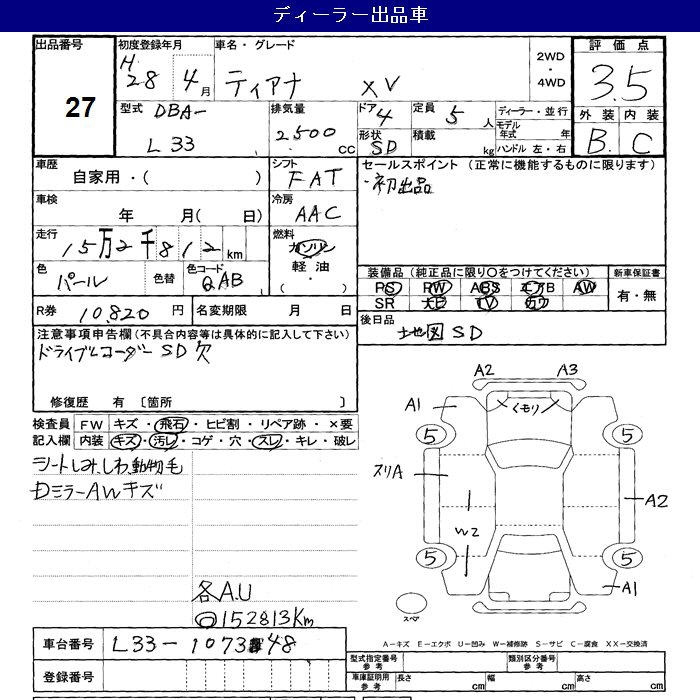 ディーラー出品車
出品番号 初度登録年月 車名・グレード 2WD・4WD 評価点
27 H28年4月 ティアナ XV 3.5
型式 DBA- L33 排気量 2500cc ドア 4 定員 5人 ディーラー・並行 外装 内装
形状 SD 積載 kg モデル年式 年 ハンドル 左・右 B C
車歴 自家用・( ) シフト FAT セールスポイント(正常に機能するものに限ります)
・初出品
車検 年 月(日) 冷房 AAC
走行 15万2千812km 燃料 ガソリン 軽油・( )
色 パール 色替 色コード QAB
装備品(純正品に限り○をつけてください) 新車保証書
PS PW ABS エアB AW 有・無
SR ナビ TV カワ
R券 10,820円 名変期限 月 日 後日品 地図SD
注意事項申告欄(不具合内容等は具体的に記入して下さい)
ドライブレコーダーSD欠
修復歴 有〔箇所 〕
検査員記入欄 FW キズ・飛石・ヒビ割・リペア跡・×要
内装 キズ・汚レ・コゲ・穴・スレ・キレ・破レ
シートしみ、しわ、動物毛
DミラーAWキズ
各A.U
152813Km
A2 A3
A1 くモリ
5 5
スリA
A2
W2
5 5
A1
スペア
A-キズ E-エクボ U-凹み W-補修跡 S-サビ C-腐食 XX-交換済
車台番号 L33-107348
型式指定番号 参考 類別区分番号 参考
登録番号 車庫証明用 参考 長さ cm 幅 cm 高さ cm